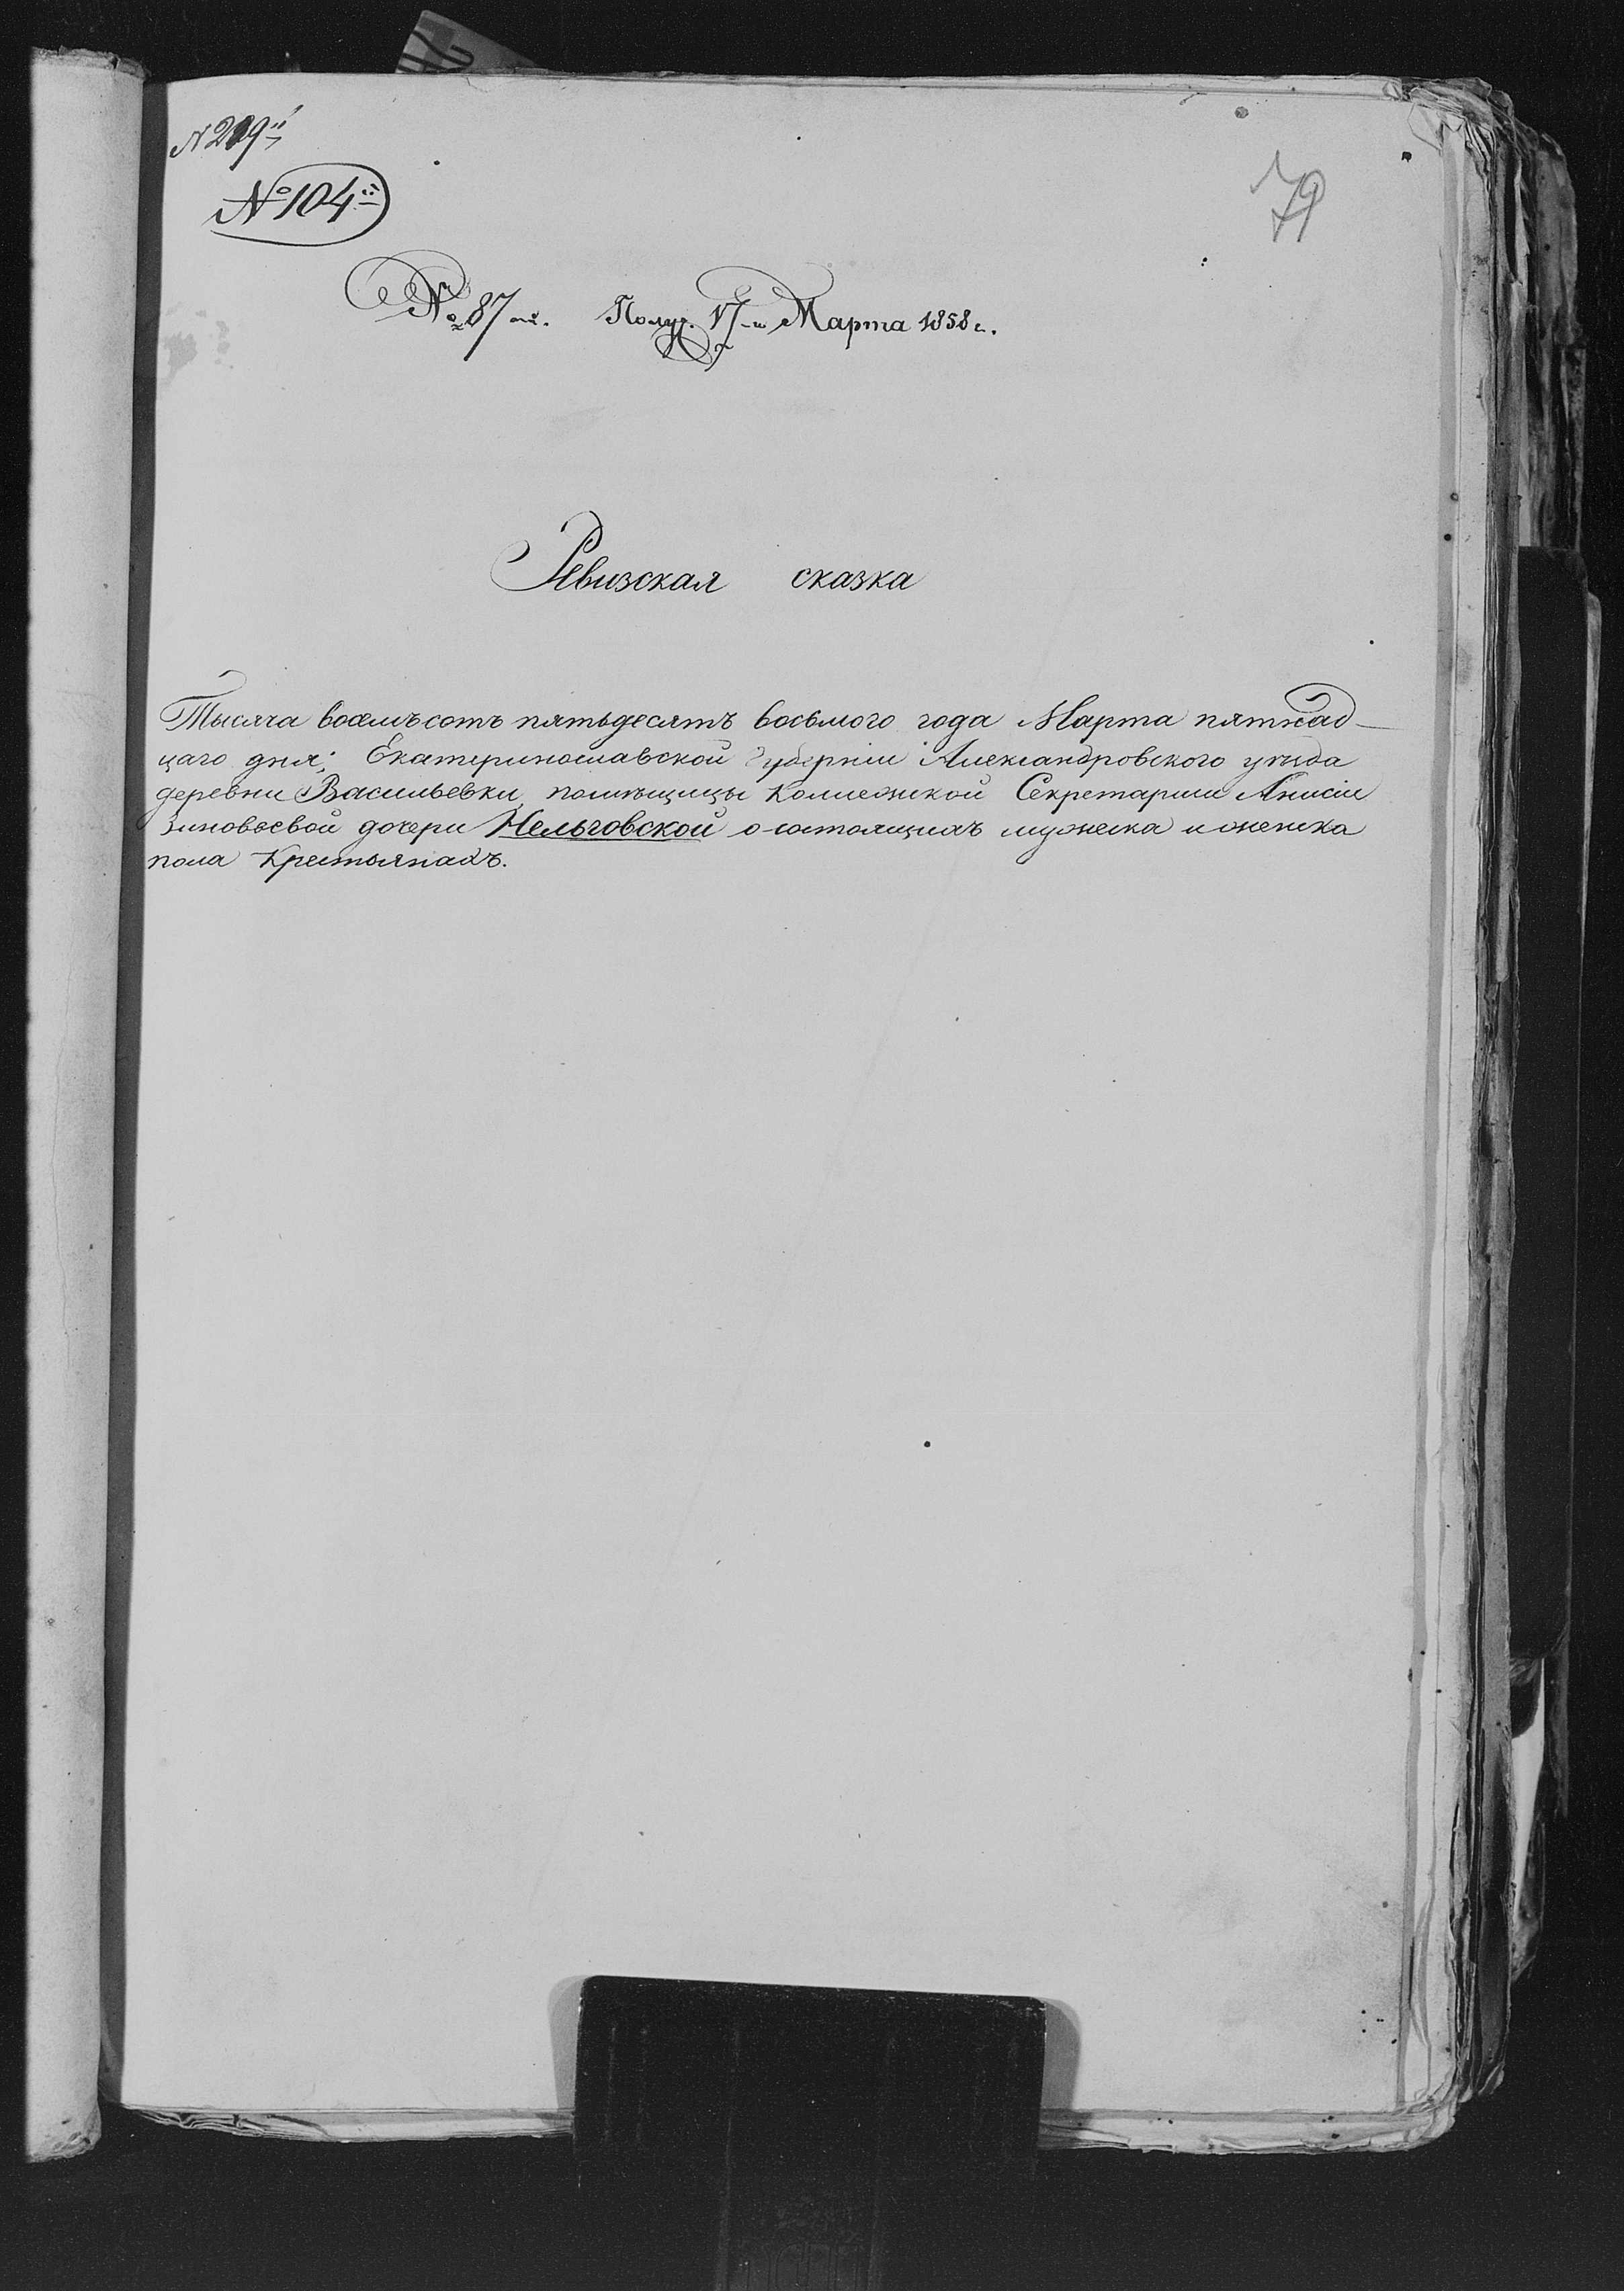 N 219й
79
№ 104й
№ 87ой. Получ. 17-го Марта 1858 г.
Ревизская сказка
Тысяча восемъсотъ пятьдесятъ восьмого года Марта пятнад-
цаго дня; Екатеринославской Губерніи Александровского уѣзда
деревни Васильевки помѣщицы Коллежской Секретарши Анисіи
Зиновьевой дочери Нельговской о состоящихъ мужеска и женска
пола Крестьянахъ.